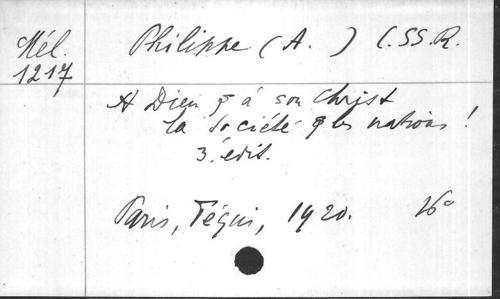 Mél.
1217
Philippe (A. ) C.SS.R.
A Dieu & à son Christ
la Société & les nations !
3. édit.
Paris, Téqui, 1920. 16°